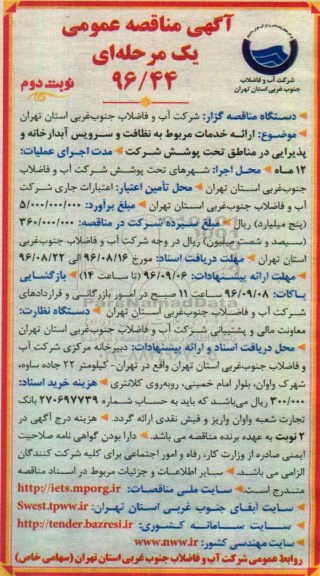 آگهی مناقصه عمومی
یک مرحله‌ای
۹۶/۴۴
نوبت دوم
شرکت آب و فاضلاب
جنوب غربی استان تهران
دستگاه مناقصه گزار: شرکت آب و فاضلاب جنوب‌غربی استان تهران
موضوع: ارائه خدمات مربوط به نظافت و سرویس آبدارخانه و
پذیرایی در مناطق تحت پوشش شرکت مدت اجرای عملیات:
۱۲ ماه محل اجرا: شهرهای تحت پوشش شرکت آب و فاضلاب
جنوب‌غربی استان تهران محل تأمین اعتبار: اعتبارات جاری شرکت
آب و فاضلاب جنوب‌غربی استان تهران مبلغ برآورد: ۵/۰۰۰/۰۰۰/۰۰۰
(پنج میلیارد) ریال مبلغ سپرده شرکت در مناقصه: ۳۶۰/۰۰۰/۰۰۰
(سیصد و شصت میلیون) ریال در وجه شرکت آب و فاضلاب جنوب‌غربی
استان تهران مهلت دریافت اسناد: مورخ ۹۶/۰۸/۱۶ الی ۹۶/۰۸/۲۲
مهلت ارائه پیشنهادات: ۹۶/۰۹/۰۶ (تا ساعت ۱۴) بازگشایی
پاکات: ۹۶/۰۹/۰۸ ساعت ۱۱ صبح در امور بازرگانی و قراردادهای
شرکت آب و فاضلاب جنوب‌غربی استان تهران دستگاه نظارت:
معاونت مالی و پشتیبانی شرکت آب و فاضلاب جنوب‌غربی استان تهران
محل دریافت اسناد و ارائه پیشنهادات: دبیرخانه مرکزی شرکت آب
و فاضلاب جنوب‌غربی استان تهران واقع در تهران - کیلومتر ۲۲ جاده ساوه،
شهرک واوان، بلوار امام خمینی، روبه‌روی کلانتری هزینه خرید اسناد:
۳۰۰/۰۰۰ ریال می‌باشد که باید به حساب شماره ۲۷۰۶۹۷۷۳۹ بانک
تجارت شعبه واوان واریز و فیش نقدی ارائه گردد. هزینه درج آگهی در
۲ نوبت به عهده برنده مناقصه می باشد. دارا بودن گواهی نامه صلاحیت
ایمنی صادره از وزارت کار، رفاه و امور اجتماعی برای کلیه شرکت کنندگان
الزامی می‌باشد. سایر اطلاعات و جزئیات مربوط در اسناد مناقصه
مندرج است. سایت ملی مناقصات: http://iets.mporg.ir
سایت آبفای جنوب غربی استان تهران: Swest.tpww.ir
سایت سامانه کشوری: http://tender.bazresi.ir
سایت مهندسی کشور: www.nww.ir
روابط عمومی شرکت آب و فاضلاب جنوب غربی استان تهران (سهامی خاص)